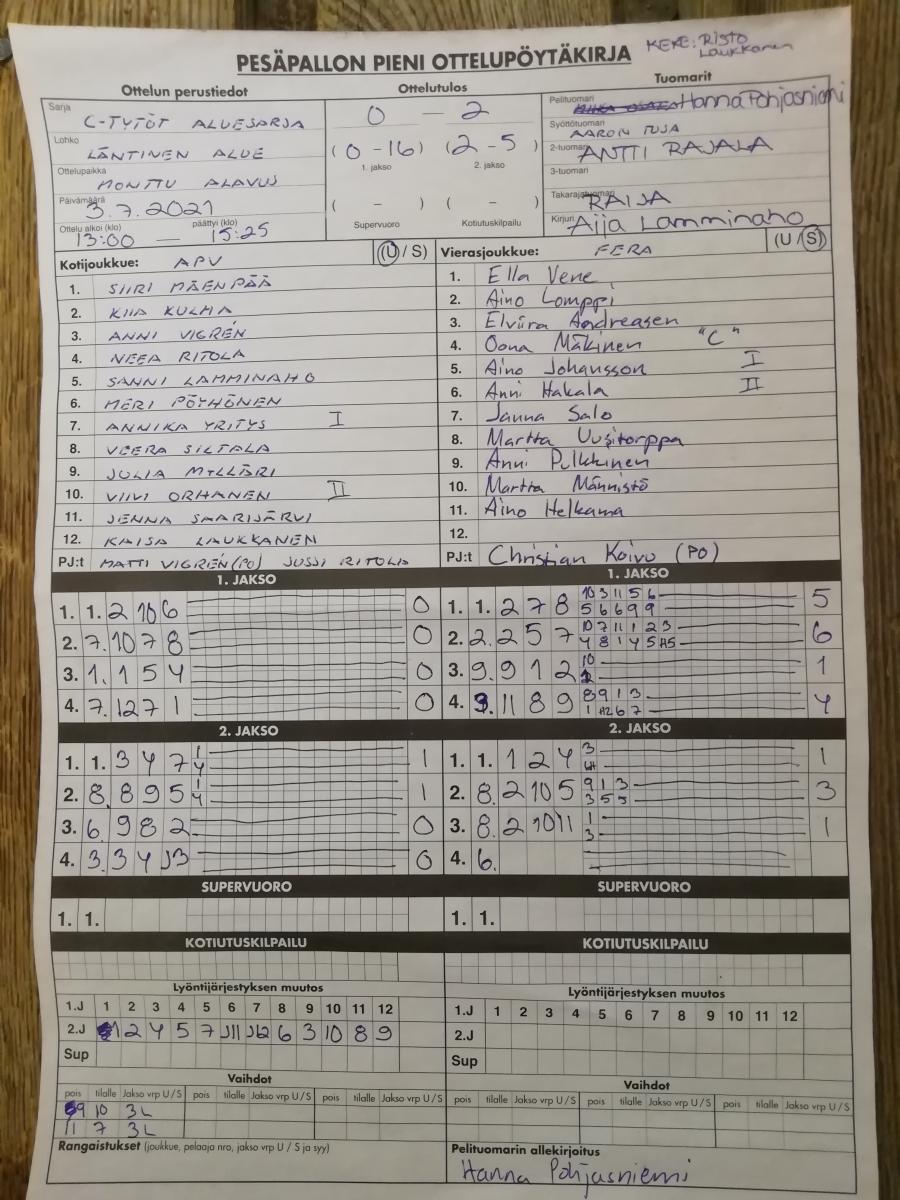 PESÄPALLON PIENI OTTELUPÖYTÄKIRJA
KEKE: RISTO Laukkanen
Ottelun perustiedot
Sarja C-TYTÖT ALUESARJA
Lohko LÄNTINEN ALUE
Ottelupaikka MONTTU ALAVUS
Päivämäärä 3.7.2021
Ottelu alkoi (klo) päättyi (klo)
13:00 — 15:25
Ottelutulos
0 — 2
(0 - 16) (2 - 5)
1. jakso 2. jakso
( - ) ( - )
Supervuoro Kotiutuskilpailu
Tuomarit
Pelituomari Hanna Pohjasniemi
Syöttötuomari AARON TUJA
2-tuomari ANTTI RAJALA
3-tuomari
Takarajatuomari RAIJA
Kirjuri Aija Lamminaho
Kotijoukkue: APV (U / S)
1. SIIRI MÄENPÄÄ
2. KIIA KULHA
3. ANNI VIGREN
4. NEEA RITOLA
5. SANNI LAMMINAHO
6. MERI PÖYHÖNEN
7. ANNIKA YRITYS I
8. VEERA SILTALA
9. JULIA MYLLÄRI
10. VIIVI ORHANEN II
11. JENNA SAARIJÄRVI
12. KAISA LAUKKANEN
PJ:t MATTI VIGREN (PO) JUSSI RITOLA
Vierasjoukkue: FERA (U / S)
1. Ella Vene
2. Aino Lomppi
3. Elviira Andreasen
4. Oona Mäkinen "C"
5. Aino Johansson I
6. Anni Hakala II
7. Janna Salo
8. Martta Uusitorppa
9. Anni Pulkkinen
10. Martta Männistö
11. Aino Helkama
12.
PJ:t Christian Koivu (PO)
1. JAKSO
1. 1. 2 10 6 0
2. 7. 10 7 8 0
3. 1. 1 5 4 0
4. 7. 12 7 1 0
1. JAKSO
1. 1. 2 7 8 10 3 11 5 6 5
5 6 6 9 9
2. 2. 2 5 7 10 7 11 1 2 3 6
4 8 1 4 5 H5
3. 9. 9 1 2 10 1
4. 3. 11 8 9 8 9 1 3 4
1 H2 6 7
2. JAKSO
1. 1. 3 4 7 1 1
4
2. 8. 8 9 5 1 1
4
3. 6. 9 8 2 0
4. 3. 3 4 J3 0
2. JAKSO
1. 1. 1 2 4 3 1
2. 8. 2 10 5 9 1 3 3
3 5 5
3. 8. 2 10 11 1 1
3
4. 6.
SUPERVUORO
1. 1.
SUPERVUORO
1. 1.
KOTIUTUSKILPAILU
KOTIUTUSKILPAILU
Lyöntijärjestyksen muutos
1.J 1 2 3 4 5 6 7 8 9 10 11 12
2.J 1 2 4 5 7 J11 J12 6 3 10 8 9
Sup
Lyöntijärjestyksen muutos
1.J 1 2 3 4 5 6 7 8 9 10 11 12
2.J
Sup
Vaihdot
pois tilalle Jakso vrp U / S pois tilalle Jakso vrp U / S pois tilalle Jakso vrp U / S
9 10 3L
11 7 3L
Vaihdot
pois tilalle Jakso vrp U / S pois tilalle Jakso vrp U / S pois tilalle Jakso vrp U / S
Rangaistukset (joukkue, pelaaja nro, jakso vrp U / S ja syy)
Pelituomarin allekirjoitus
Hanna Pohjasniemi